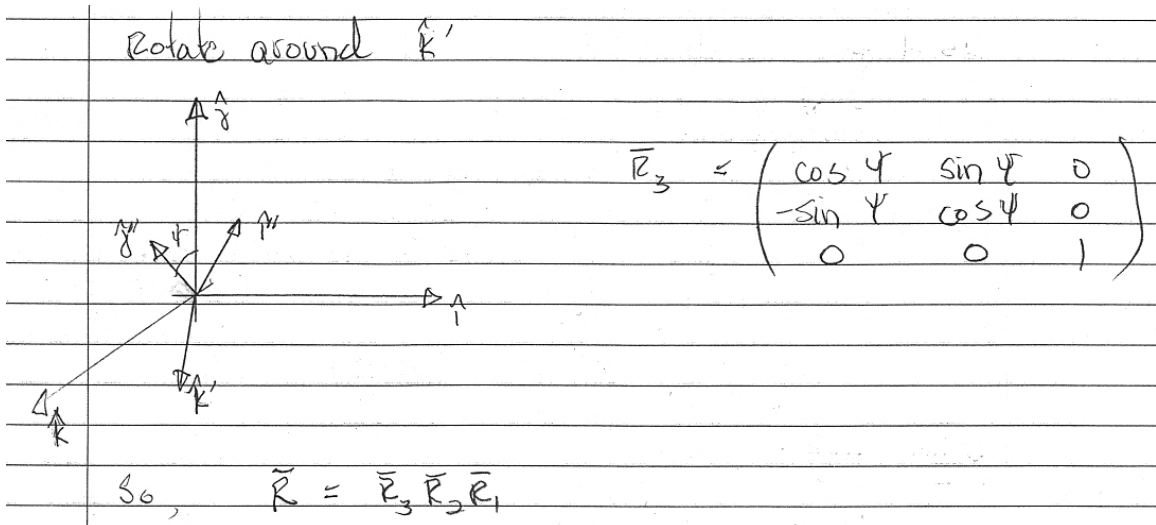 Rotate around k̂'
ĵ
R̄₃ = ( cos ψ sin ψ 0
-sin ψ cos ψ 0
0 0 1 )
ĵ'' ψ î''
î
k̂'
k̂
So, R̄ = R̄₃ R̄₂ R̄₁